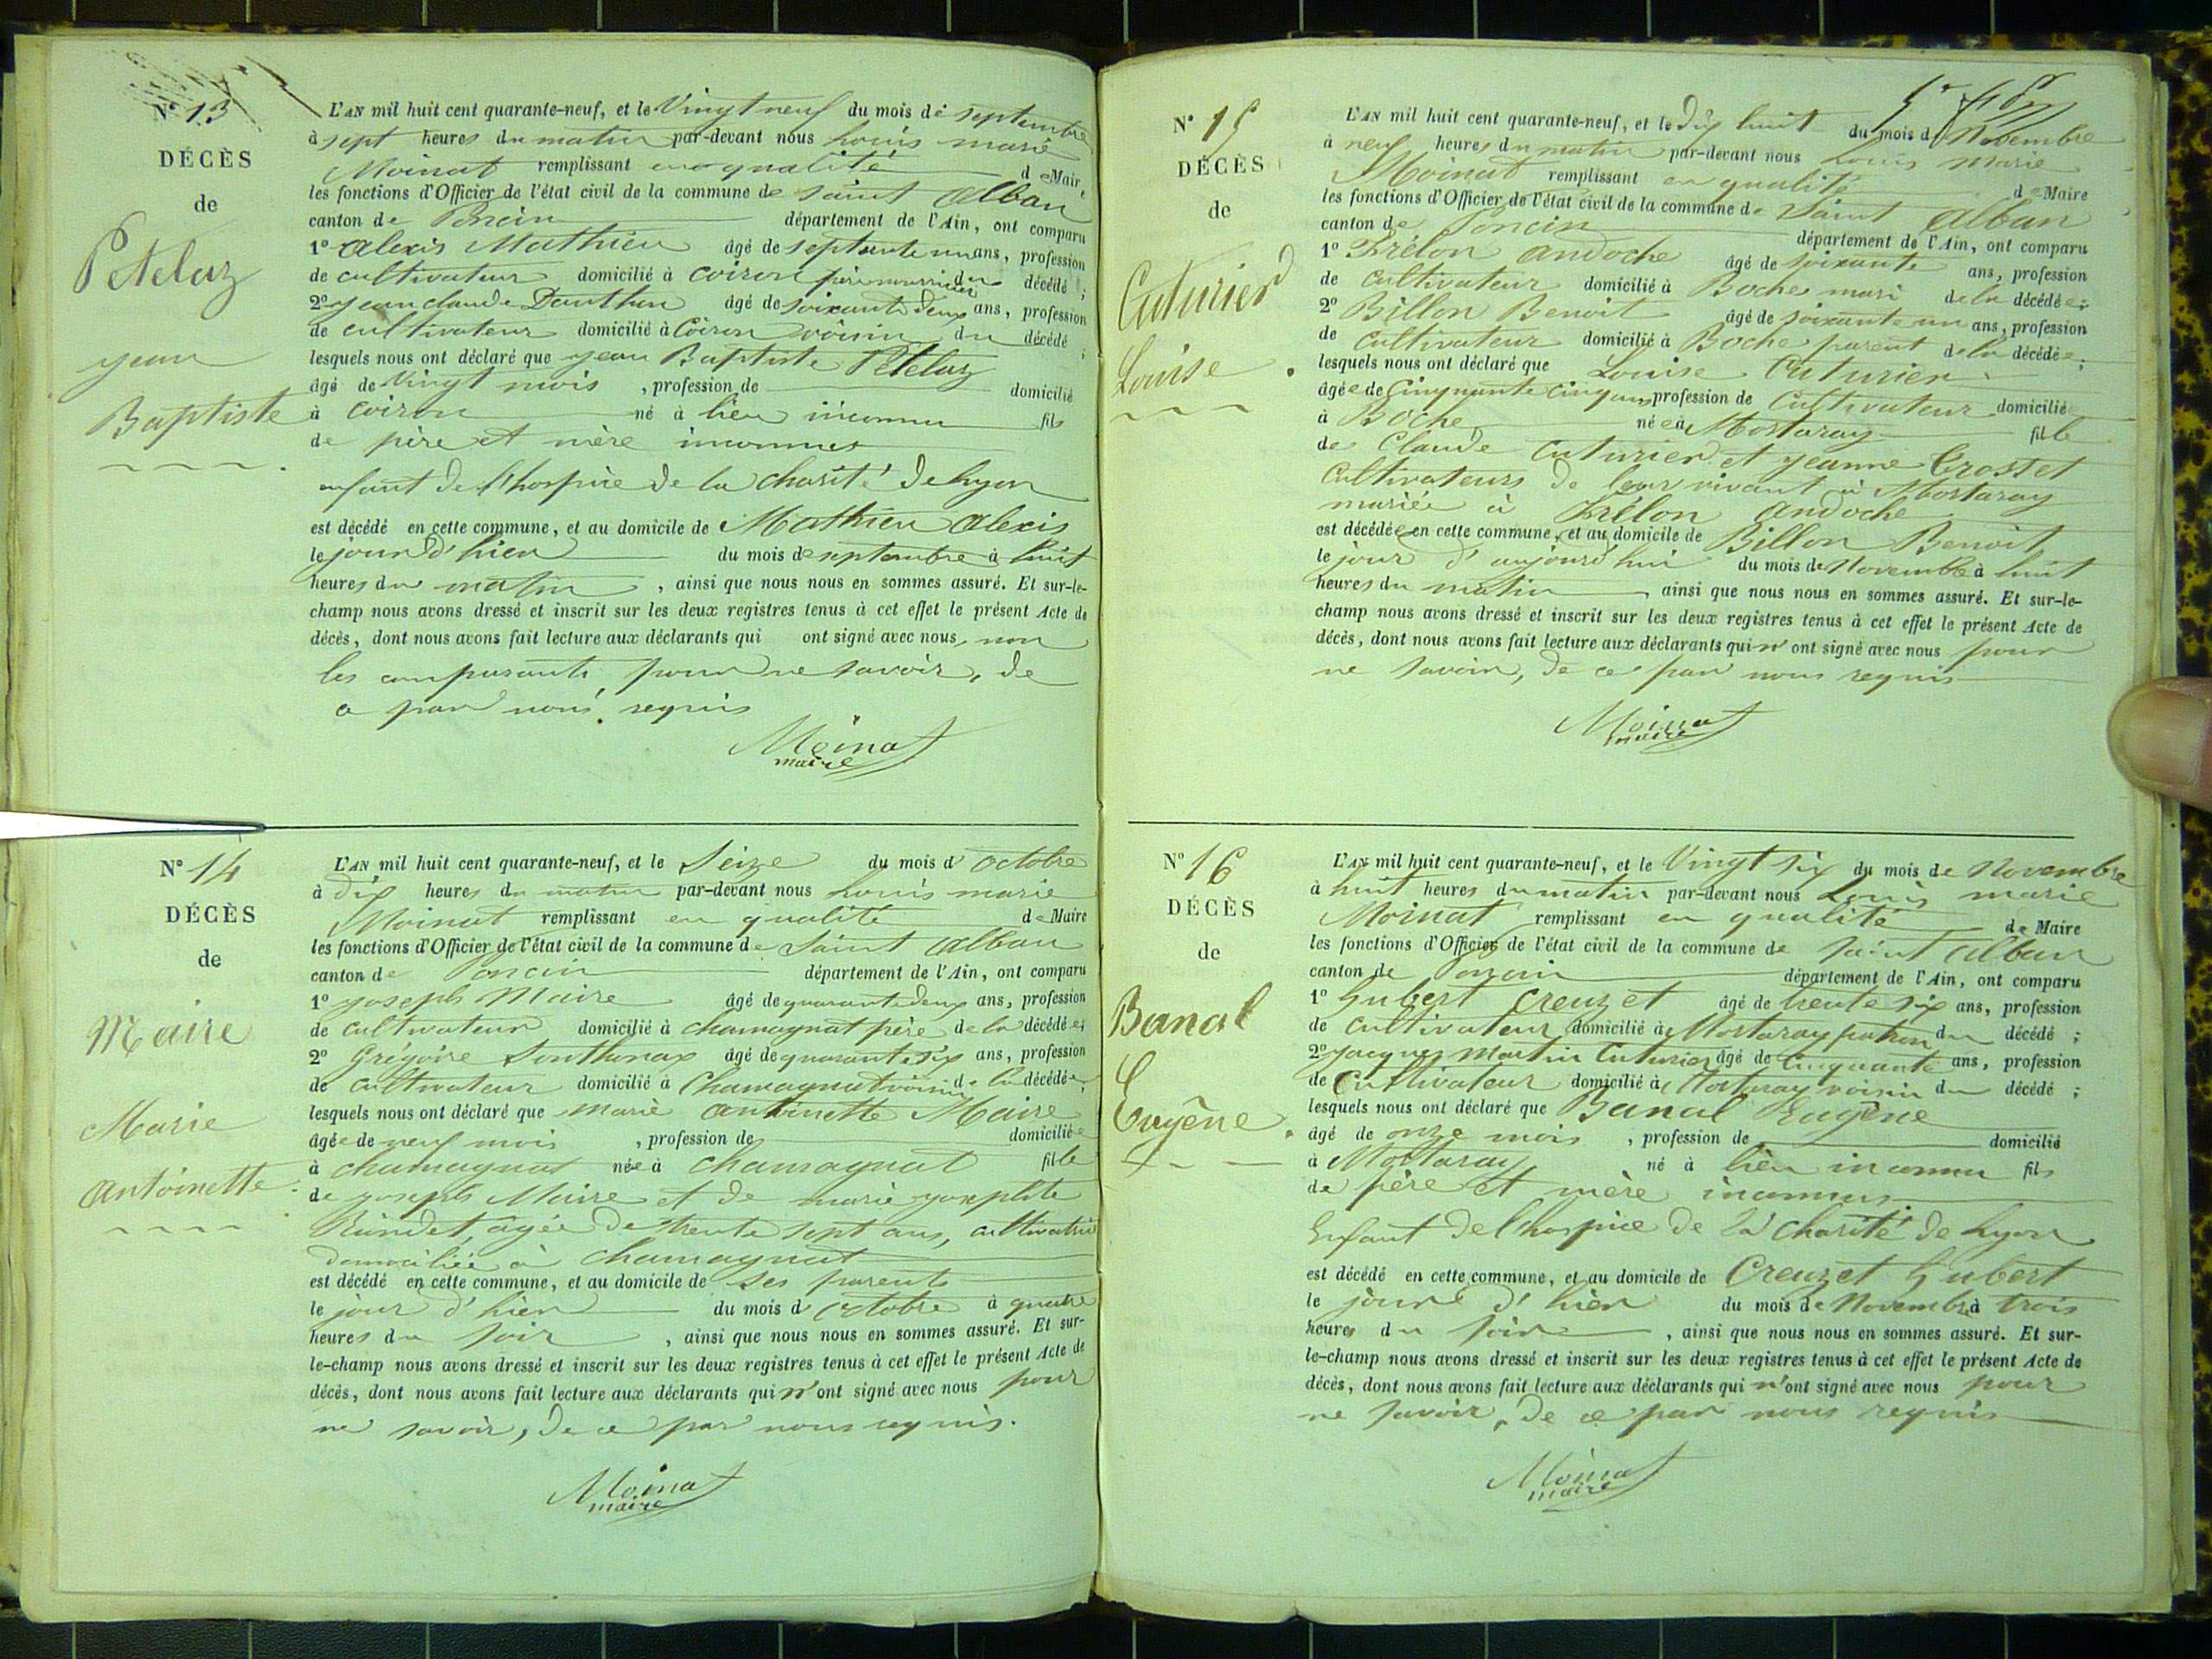 N° 13
DÉCÈS
de
Petelaz
jean
Baptiste
L'AN mil huit cent quarante-neuf, et le Vingt neuf du mois de septembre
à sept heures du matin par-devant nous Louis marie
Moinat remplissant en qualité de Maire
les fonctions d'Officier de l'état civil de la commune de saint Alban
canton de Poncin département de l'Ain, ont comparu
1° Alexis Mathieu âgé de septante un ans, profession
de cultivateur domicilié à Coiron père nourricier du décédé ;
2° jean claude Danthon âgé de soixante deux ans, profession
de cultivateur domicilié à Coiron voisin du décédé ;
lesquels nous ont déclaré que jean Baptiste Petelaz
âgé de Vingt mois , profession de domicilié
à Coiron né à lieu inconnu fils
de père et mère inconnus
enfant de l'hospice de la charité de Lyon
est décédé en cette commune, et au domicile de Mathieu Alexis
le jour d'hier du mois de septembre à huit
heures du matin , ainsi que nous nous en sommes assuré. Et sur-le-
champ nous avons dressé et inscrit sur les deux registres tenus à cet effet le présent Acte de
décès, dont nous avons fait lecture aux déclarants qui ont signé avec nous, non
les comparants pour ne savoir, de
ce par nous requis
Moinat
maire
N° 14
DÉCÈS
de
Maire
Marie
Antoinette
L'AN mil huit cent quarante-neuf, et le Seize du mois d'octobre
à dix heures du matin par-devant nous Louis marie
Moinat remplissant en qualité de Maire
les fonctions d'Officier de l'état civil de la commune de Saint Alban
canton de Poncin département de l'Ain, ont comparu
1° joseph Maire âgé de quarante deux ans, profession
de cultivateur domicilié à chamagnat père de la décédée ;
2° Grégoire Sonthonax âgé de quarante six ans, profession
de cultivateur domicilié à Chamagnat voisin de la décédée ;
lesquels nous ont déclaré que marie antoinette Maire
âgée de neuf mois , profession de domiciliée
à chamagnat née à chamagnat fille
de joseph Maire et de marie josephte
âgée de trente sept ans, cultivatrice
domiciliée à chamagnat
est décédé en cette commune, et au domicile de ses parents
le jour d'hier du mois d'octobre à quatre
heures du soir , ainsi que nous nous en sommes assuré. Et sur-
le-champ nous avons dressé et inscrit sur les deux registres tenus à cet effet le présent Acte de
décès, dont nous avons fait lecture aux déclarants qui n'ont signé avec nous pour
ne savoir, de ce par nous requis.
Moinat
maire
N° 15
DÉCÈS
de
Cuturier
Louise
L'AN mil huit cent quarante-neuf, et le Dix huit du mois de Novembre
à neuf heures du matin par-devant nous Louis Marie
Moinat remplissant en qualité de Maire
les fonctions d'Officier de l'état civil de la commune de Saint Alban
canton de Poncin département de l'Ain, ont comparu
1° Frélon Andoche âgé de soixante ans, profession
de cultivateur domicilié à Boche mari de la décédée ;
2° Billon Benoit âgé de soixante un ans, profession
de cultivateur domicilié à Boche parent de la décédée ;
lesquels nous ont déclaré que Louise Cuturier
âgée de Cinquante cinq ans profession de Cultivateur domiciliée
à Boche née à Mortaray fille
de Claude Cuturier et jeanne Crostet
Cultivateurs de leur vivant à Mortaray
mariée à Frélon Andoche
est décédée en cette commune, et au domicile de Billon Benoit
le jour d'aujourd'hui du mois de Novembre à huit
heures du matin ainsi que nous nous en sommes assuré. Et sur-le-
champ nous avons dressé et inscrit sur les deux registres tenus à cet effet le présent Acte de
décès, dont nous avons fait lecture aux déclarants qui n'ont signé avec nous pour
ne savoir, de ce par nous requis
Moinat
maire
N° 16
DÉCÈS
de
Banal
Eugêne
L'AN mil huit cent quarante-neuf, et le Vingt six du mois de Novembre
à huit heures du matin par-devant nous Louis marie
Moinat remplissant en qualité de Maire
les fonctions d'Officier de l'état civil de la commune de saint Alban
canton de Poncin département de l'Ain, ont comparu
1° Gubert Creuzet âgé de trente six ans, profession
de cultivateur domicilié à Mortaray patron du décédé ;
2° jacques Martin Cuturier âgé de Cinquante ans, profession
de Cultivateur domicilié à Mortaray voisin du décédé ;
lesquels nous ont déclaré que Banal Eugêne
âgé de onze mois , profession de domicilié
à Mortaray né à lieu inconnu fils
de père et mère inconnus
Enfant de l'hospice de la charité de Lyon
est décédé en cette commune, et au domicile de Creuzet Gubert
le jour d'hier du mois de Novembre à trois
heures du soir , ainsi que nous nous en sommes assuré. Et sur-
le-champ nous avons dressé et inscrit sur les deux registres tenus à cet effet le présent Acte de
décès, dont nous avons fait lecture aux déclarants qui n'ont signé avec nous pour
ne savoir, de ce par nous requis
Moinat
maire